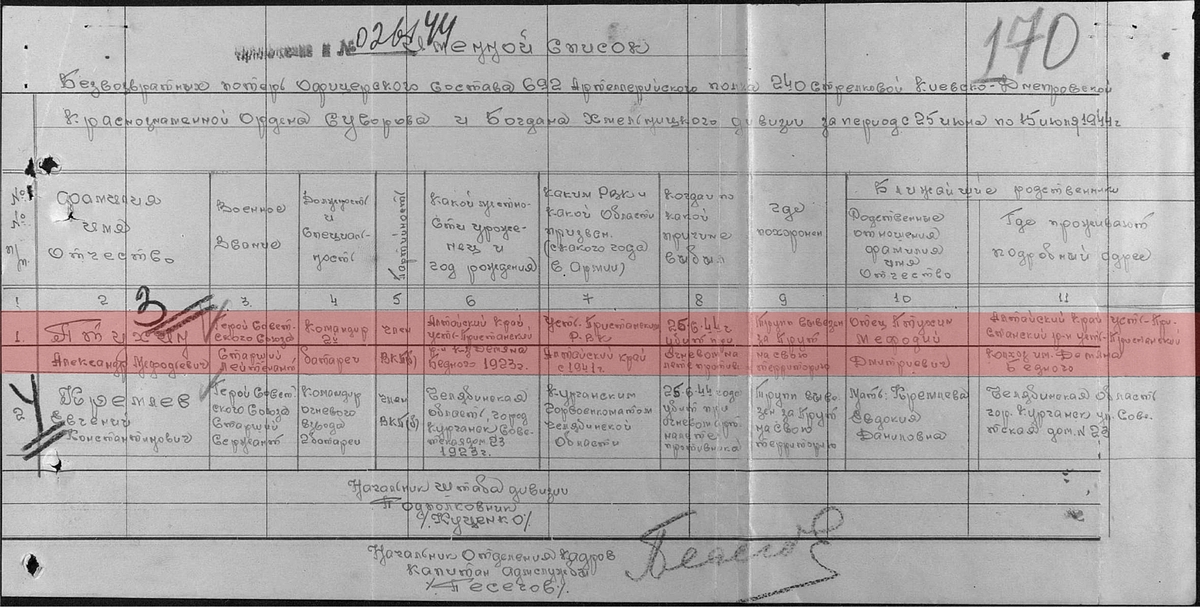 № 026144 170
Именной Список
Безвозвратных потерь Офицерского Состава 692 Артеллерийского полка 240 Стрелковой Киевско-Днепровской
Краснознаменной Ордена Суворова и Богдана Хмельницкого дивизии за период с 25 июня по 15 июля 1944 г
№№ п/п.
Фамилия имя Отчество
Военное Звание
Должность и Специальность
Партийность
Какой местности уроженец и год рождения
Каким РВК и какой Области призван. (с какого года в Армии)
Когда и по какой причине выбыл
где похоронен
Ближайшие родственники
Родственные отношения фамилия имя Отчество
Где проживают подробный адрес
1 2 3. 4 5 6 7 8 9 10 11
3
1. Птухин Александр Мефодиевич
Герой Советского Союза Старший лейтенант
Командир 2й батареи
член ВКП(б)
Алтайский край, Усть-Пристанский
Бедного 1923 г.
Усть-Пристанским РВК Алтайский край с 1941 г.
25.6.44 г убит при
Труп вывезен за Прут на свою территорию
Отец Птухин Мефодий Дмитриевич
Алтайский край Усть-Пристанский р-н
Колхоз им. Демяна Бедного
2 Кремлев Евгений Константинович
Герой Советского Союза Старший Сержант
Командир огневого взвода 2 батареи
член ВКП(б)
Челябинская область, город Курганск Советская дом. 23 1923 г.
Курганским Горвоенкоматом Челябинской Области
25.6.44 года убит при огневом арт. налете противника
Труп вывезен за Прут на свою территорию
Мать. Кремлева Евдокия Даниловна
Челябинская Область гор. Курганск ул. Советская дом. N 23
Начальник штаба дивизии
Подполковник
/Куценко/
Начальник Отделения Кадров
Капитан адмслужбы
/Песегов/.